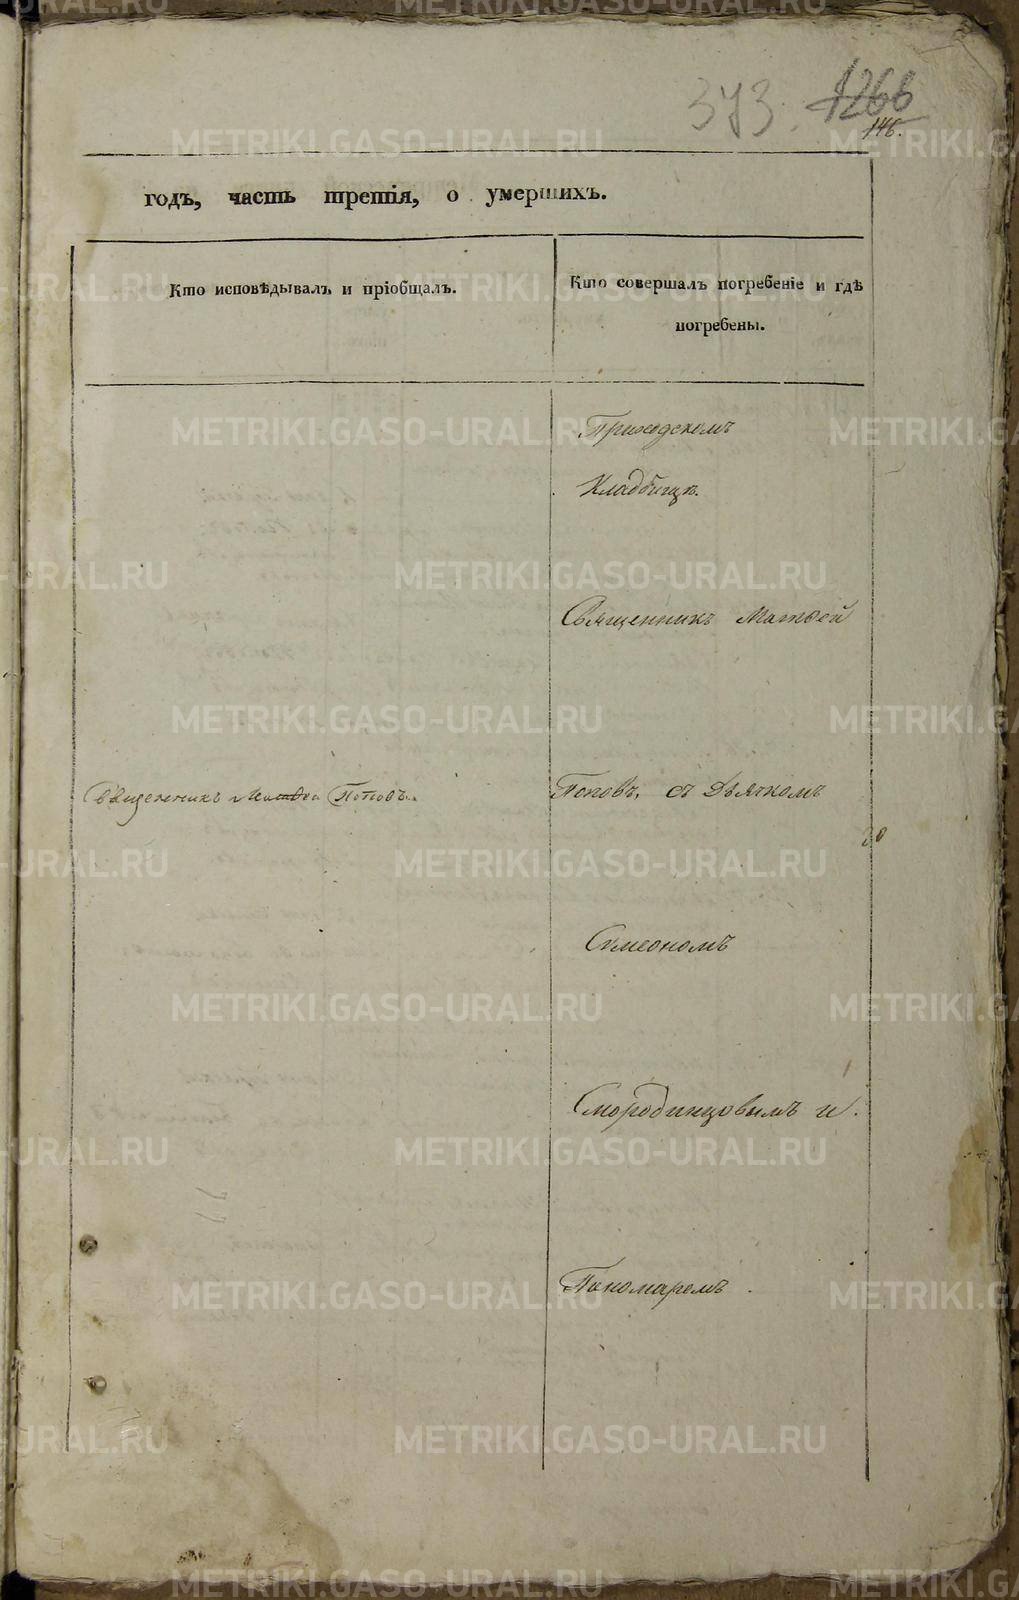 373. 1266
146.
годъ, часть третія, о умершихъ.
Кто исповѣдывалъ и пріобщалъ.
Кто совершалъ погребеніе и гдѣ
погребены.
Приходскомъ
Кладбищѣ.
Священникъ Матвей
Священникъ Матвей Поповъ.
Поповъ, съ Дьячкомъ
Симеономъ
Смородинцовымъ и
Пономаремъ
METRIKI.GASO-URAL.RU